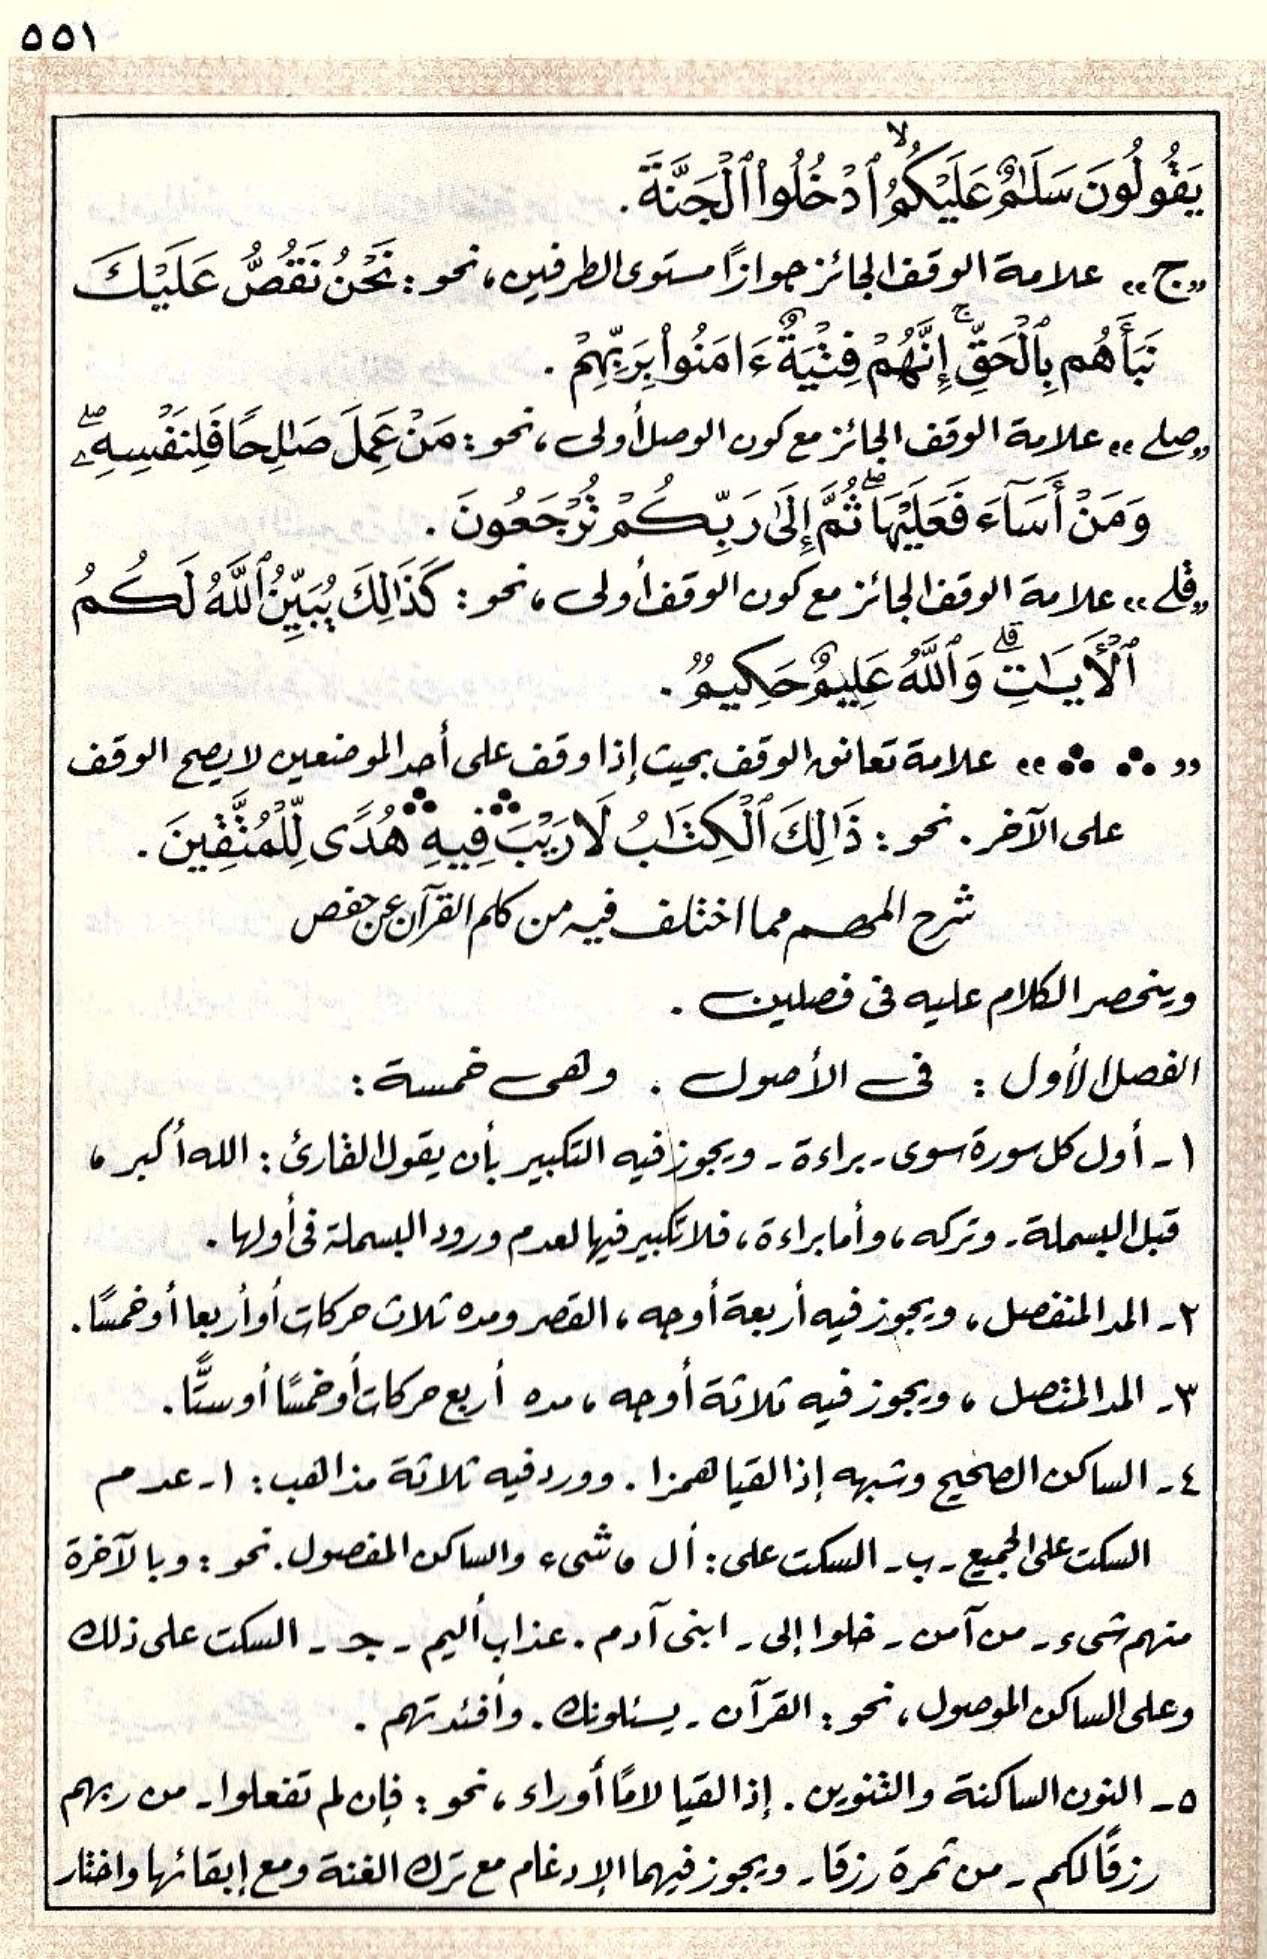 ٥٥١
يَقُولُونَ سَلَٰمٌ عَلَيْكُمُ ۙ ٱدْخُلُوا۟ ٱلْجَنَّةَ .
«ج» علامة الوقف الجائز جوازًا مستوى الطرفين، نحو : نَحْنُ نَقُصُّ عَلَيْكَ
نَبَأَهُم بِٱلْحَقِّ ۚ إِنَّهُمْ فِتْيَةٌ ءَامَنُوا۟ بِرَبِّهِمْ .
«صلے» علامة الوقف الجائز مع كون الوصل أولى، نحو : مَنْ عَمِلَ صَٰلِحًا فَلِنَفْسِهِۦ ۖ
وَمَنْ أَسَآءَ فَعَلَيْهَا ۖ ثُمَّ إِلَىٰ رَبِّكُمْ تُرْجَعُونَ .
«قلے» علامة الوقف الجائز مع كون الوقف أولى، نحو : كَذَٰلِكَ يُبَيِّنُ ٱللَّهُ لَكُمُ
ٱلْأَيَٰتِ ۗ وَٱللَّهُ عَلِيمٌ حَكِيمٌ .
«∴ ∴» علامة تعانق الوقف بحيث إذا وقف على أحد الموضعين لا يصح الوقف
على الآخر . نحو : ذَٰلِكَ ٱلْكِتَٰبُ لَا رَيْبَ ۛ فِيهِ ۛ هُدًى لِّلْمُتَّقِينَ .
شرح المهم مما اختلف فيه من كلم القرآن عن حفص
وينحصر الكلام عليه فى فصلين .
الفصل الأول : فى الأصول . وهى خمسة :
١- أول كل سورة سوى - براءة - ويجوز فيه التكبير بأن يقول القارئ : الله أكبر،
قبل البسملة - وتركه، وأما براءة، فلا تكبير فيها لعدم ورود البسملة فى أولها .
٢- المد المنفصل، ويجوز فيه أربعة أوجه، القصر ومده ثلاث حركات أو أربعا أو خمسًا .
٣- المد المتصل، ويجوز فيه ثلاثة أوجه، مده أربع حركات أو خمسًا أو ستًّا .
٤- الساكن الصحيح وشبهه إذا لقيا همزا . وورد فيه ثلاثة مذاهب : ا- عدم
السكت على الجميع - ب - السكت على : أل، شىء والساكن المفصول . نحو : وبالآخرة
منهم شىء - من آمن - خلوا إلى - ابنى آدم . عذاب أليم - جـ - السكت على ذلك
وعلى الساكن الموصول، نحو : القرآن - يسئلونك . وأفئدتهم .
٥- النون الساكنة والتنوين . إذا لقيا لامًا أو راء، نحو : فإن لم تفعلوا - من ربهم
رزقًا لكم - من ثمرة رزقا - ويجوز فيهما الإدغام مع ترك الغنة ومع إبقائها واختار